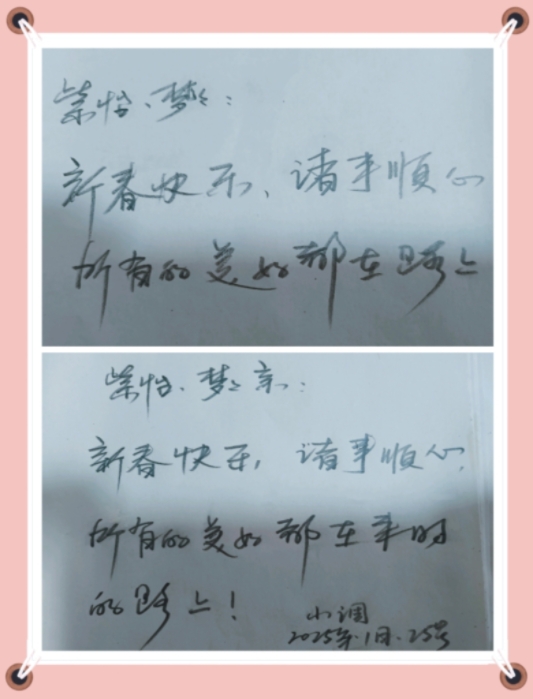 紫怡、梦々:
新春快乐、诸事顺心
所有的美好都在路上
紫怡、梦々亲:
新春快乐,诸事顺心,
所有的美好都在来时
的路上!
小调
2025年·1月·25号